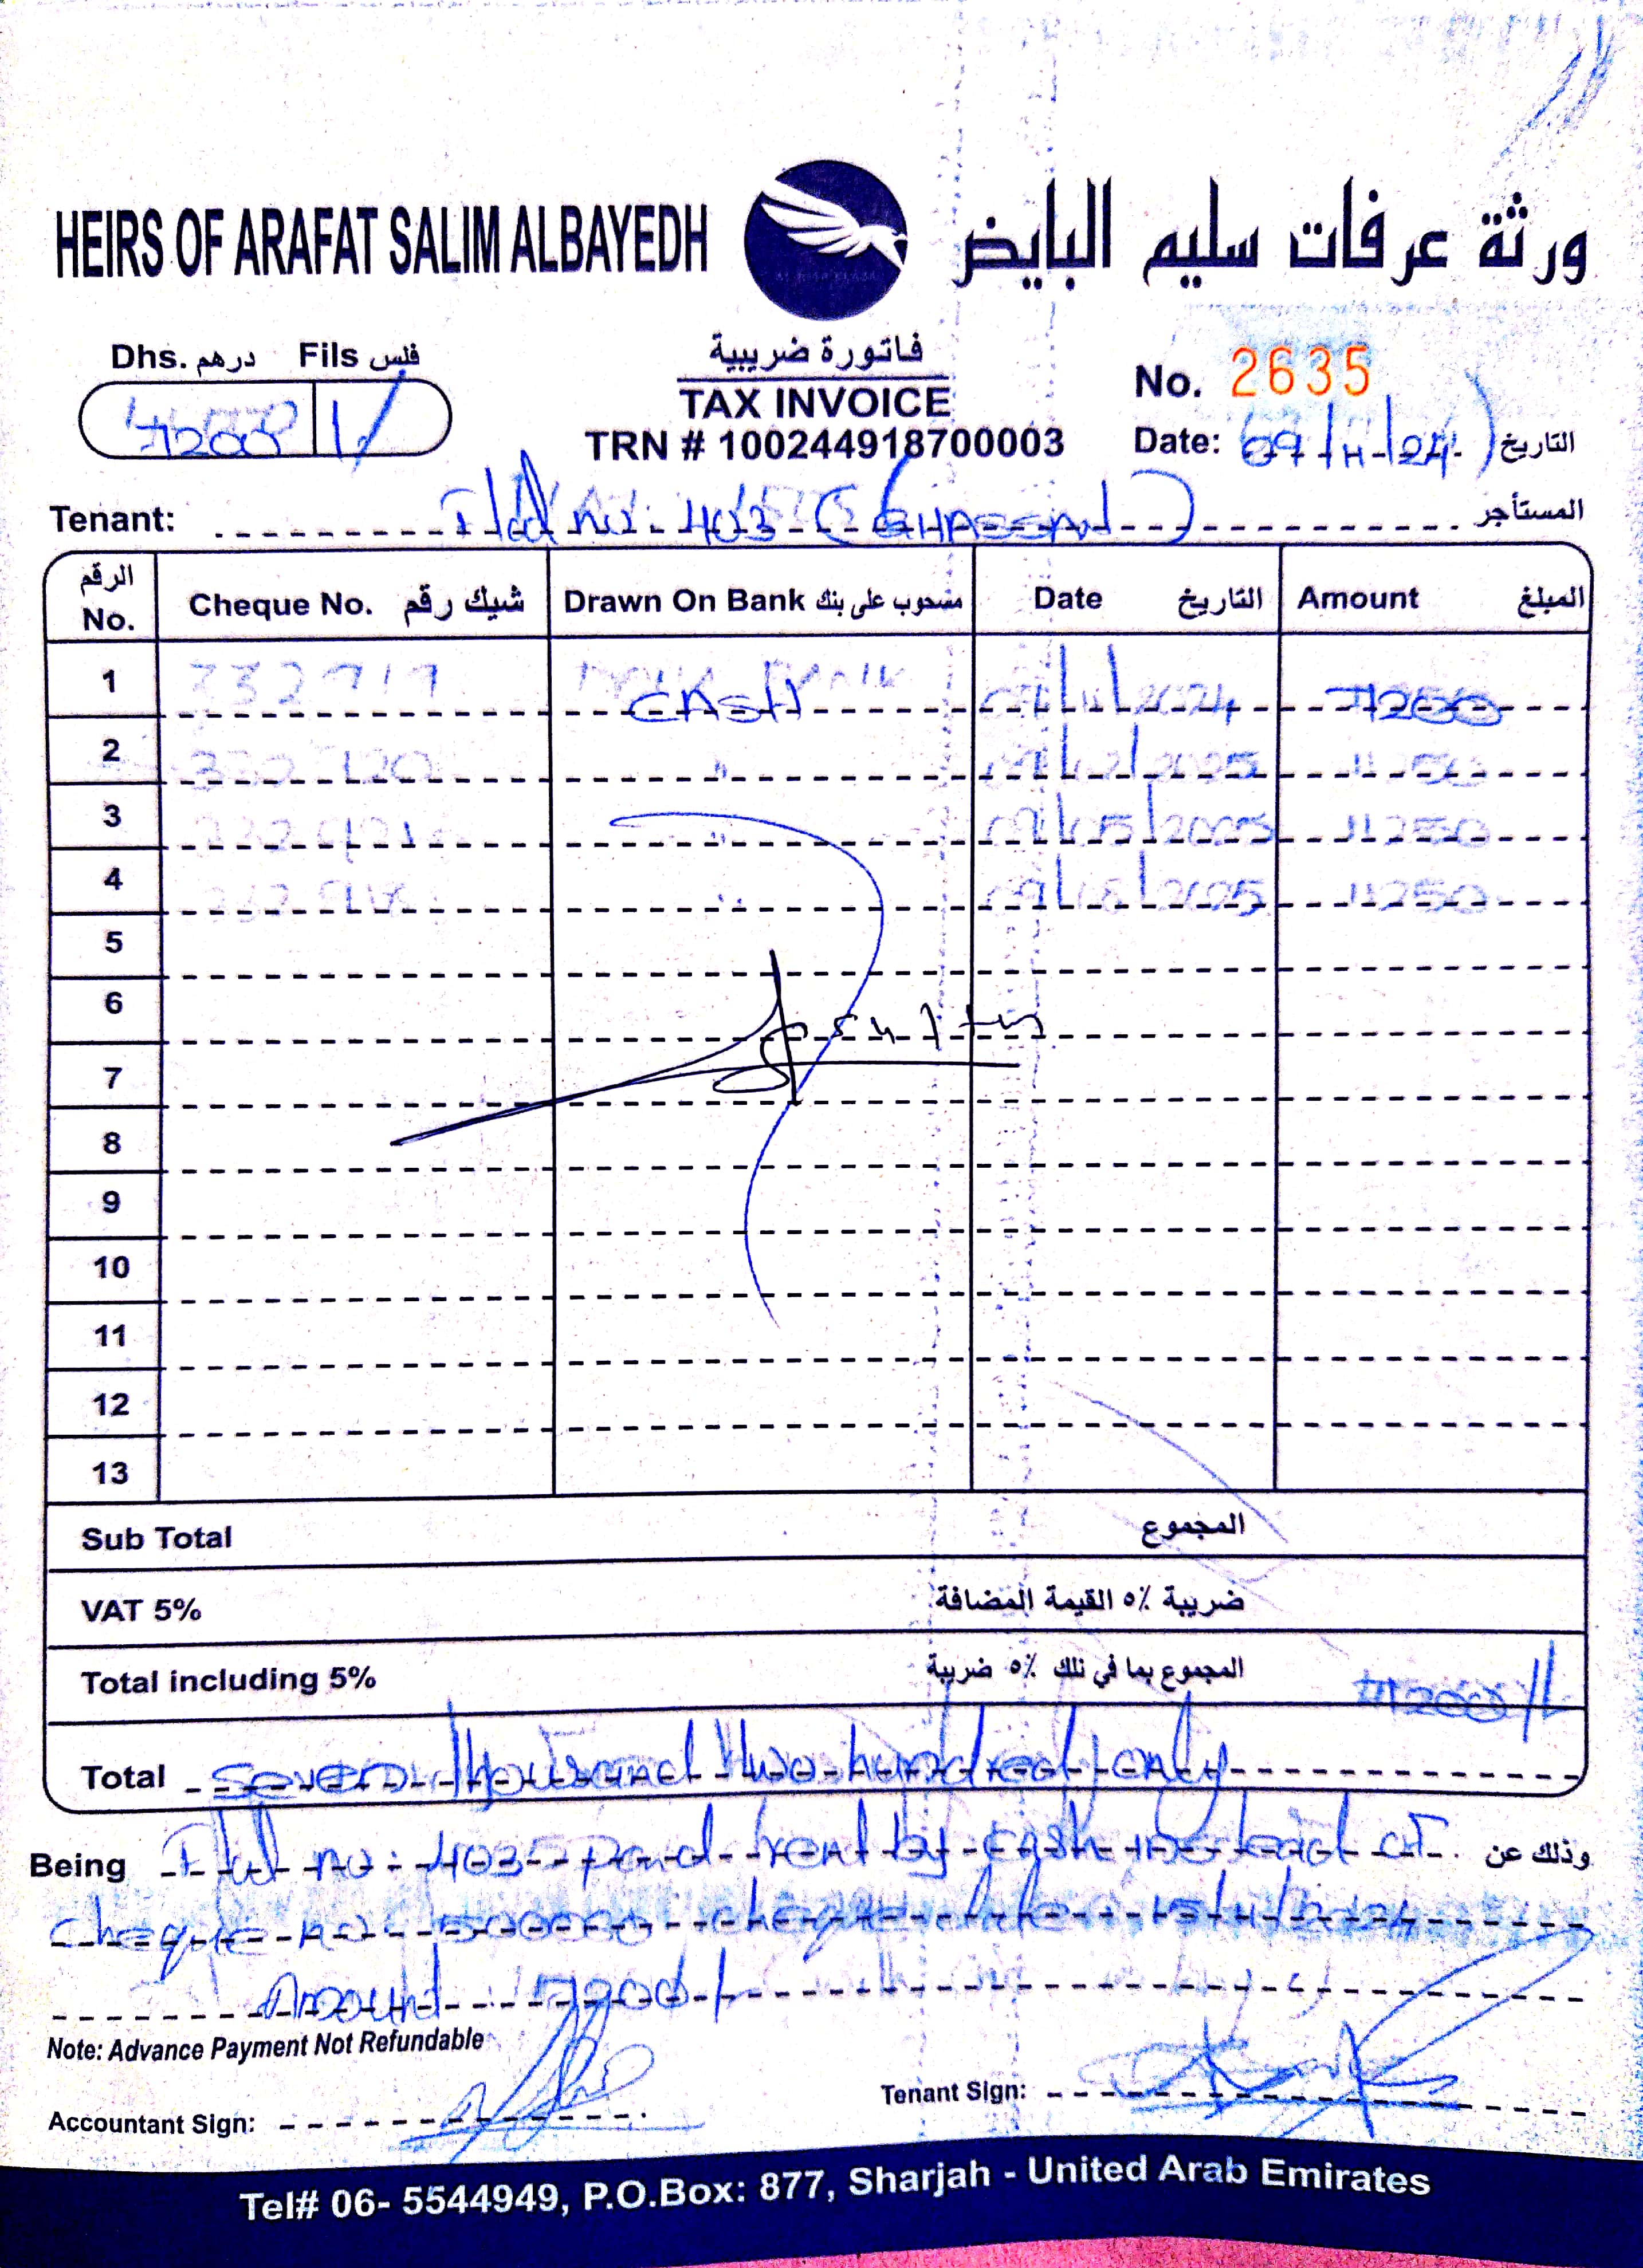 HEIRS OF ARAFAT SALIM ALBAYEDH
ورثة عرفات سليم البايض
Dhs. درهم Fils فلس
7200 /
فاتورة ضريبية
TAX INVOICE
TRN # 100244918700003
No. 2635
Date: 09/11/24 التاريخ
Tenant: Flat no: 403 (GHASSAN) المستأجر
الرقم No. Cheque No. شيك رقم Drawn On Bank مسحوب على بنك Date التاريخ Amount المبلغ
1 CASH 7200
2 11250
3 11250
4 11250
5
6
7
8
9
10
11
12
13
Sub Total المجموع
VAT 5% ضريبة ٥٪ القيمة المضافة
Total including 5% المجموع بما في ذلك ٥٪ ضريبة 7200/
Total Seven thousand two hundred only
Being Flat no: 403 paid rent by cash instead of وذلك عن
cheque no: 500000 cheque date 15/11/2024
Amount 7200/
Note: Advance Payment Not Refundable
Accountant Sign:
Tenant Sign:
Tel# 06- 5544949, P.O.Box: 877, Sharjah - United Arab Emirates